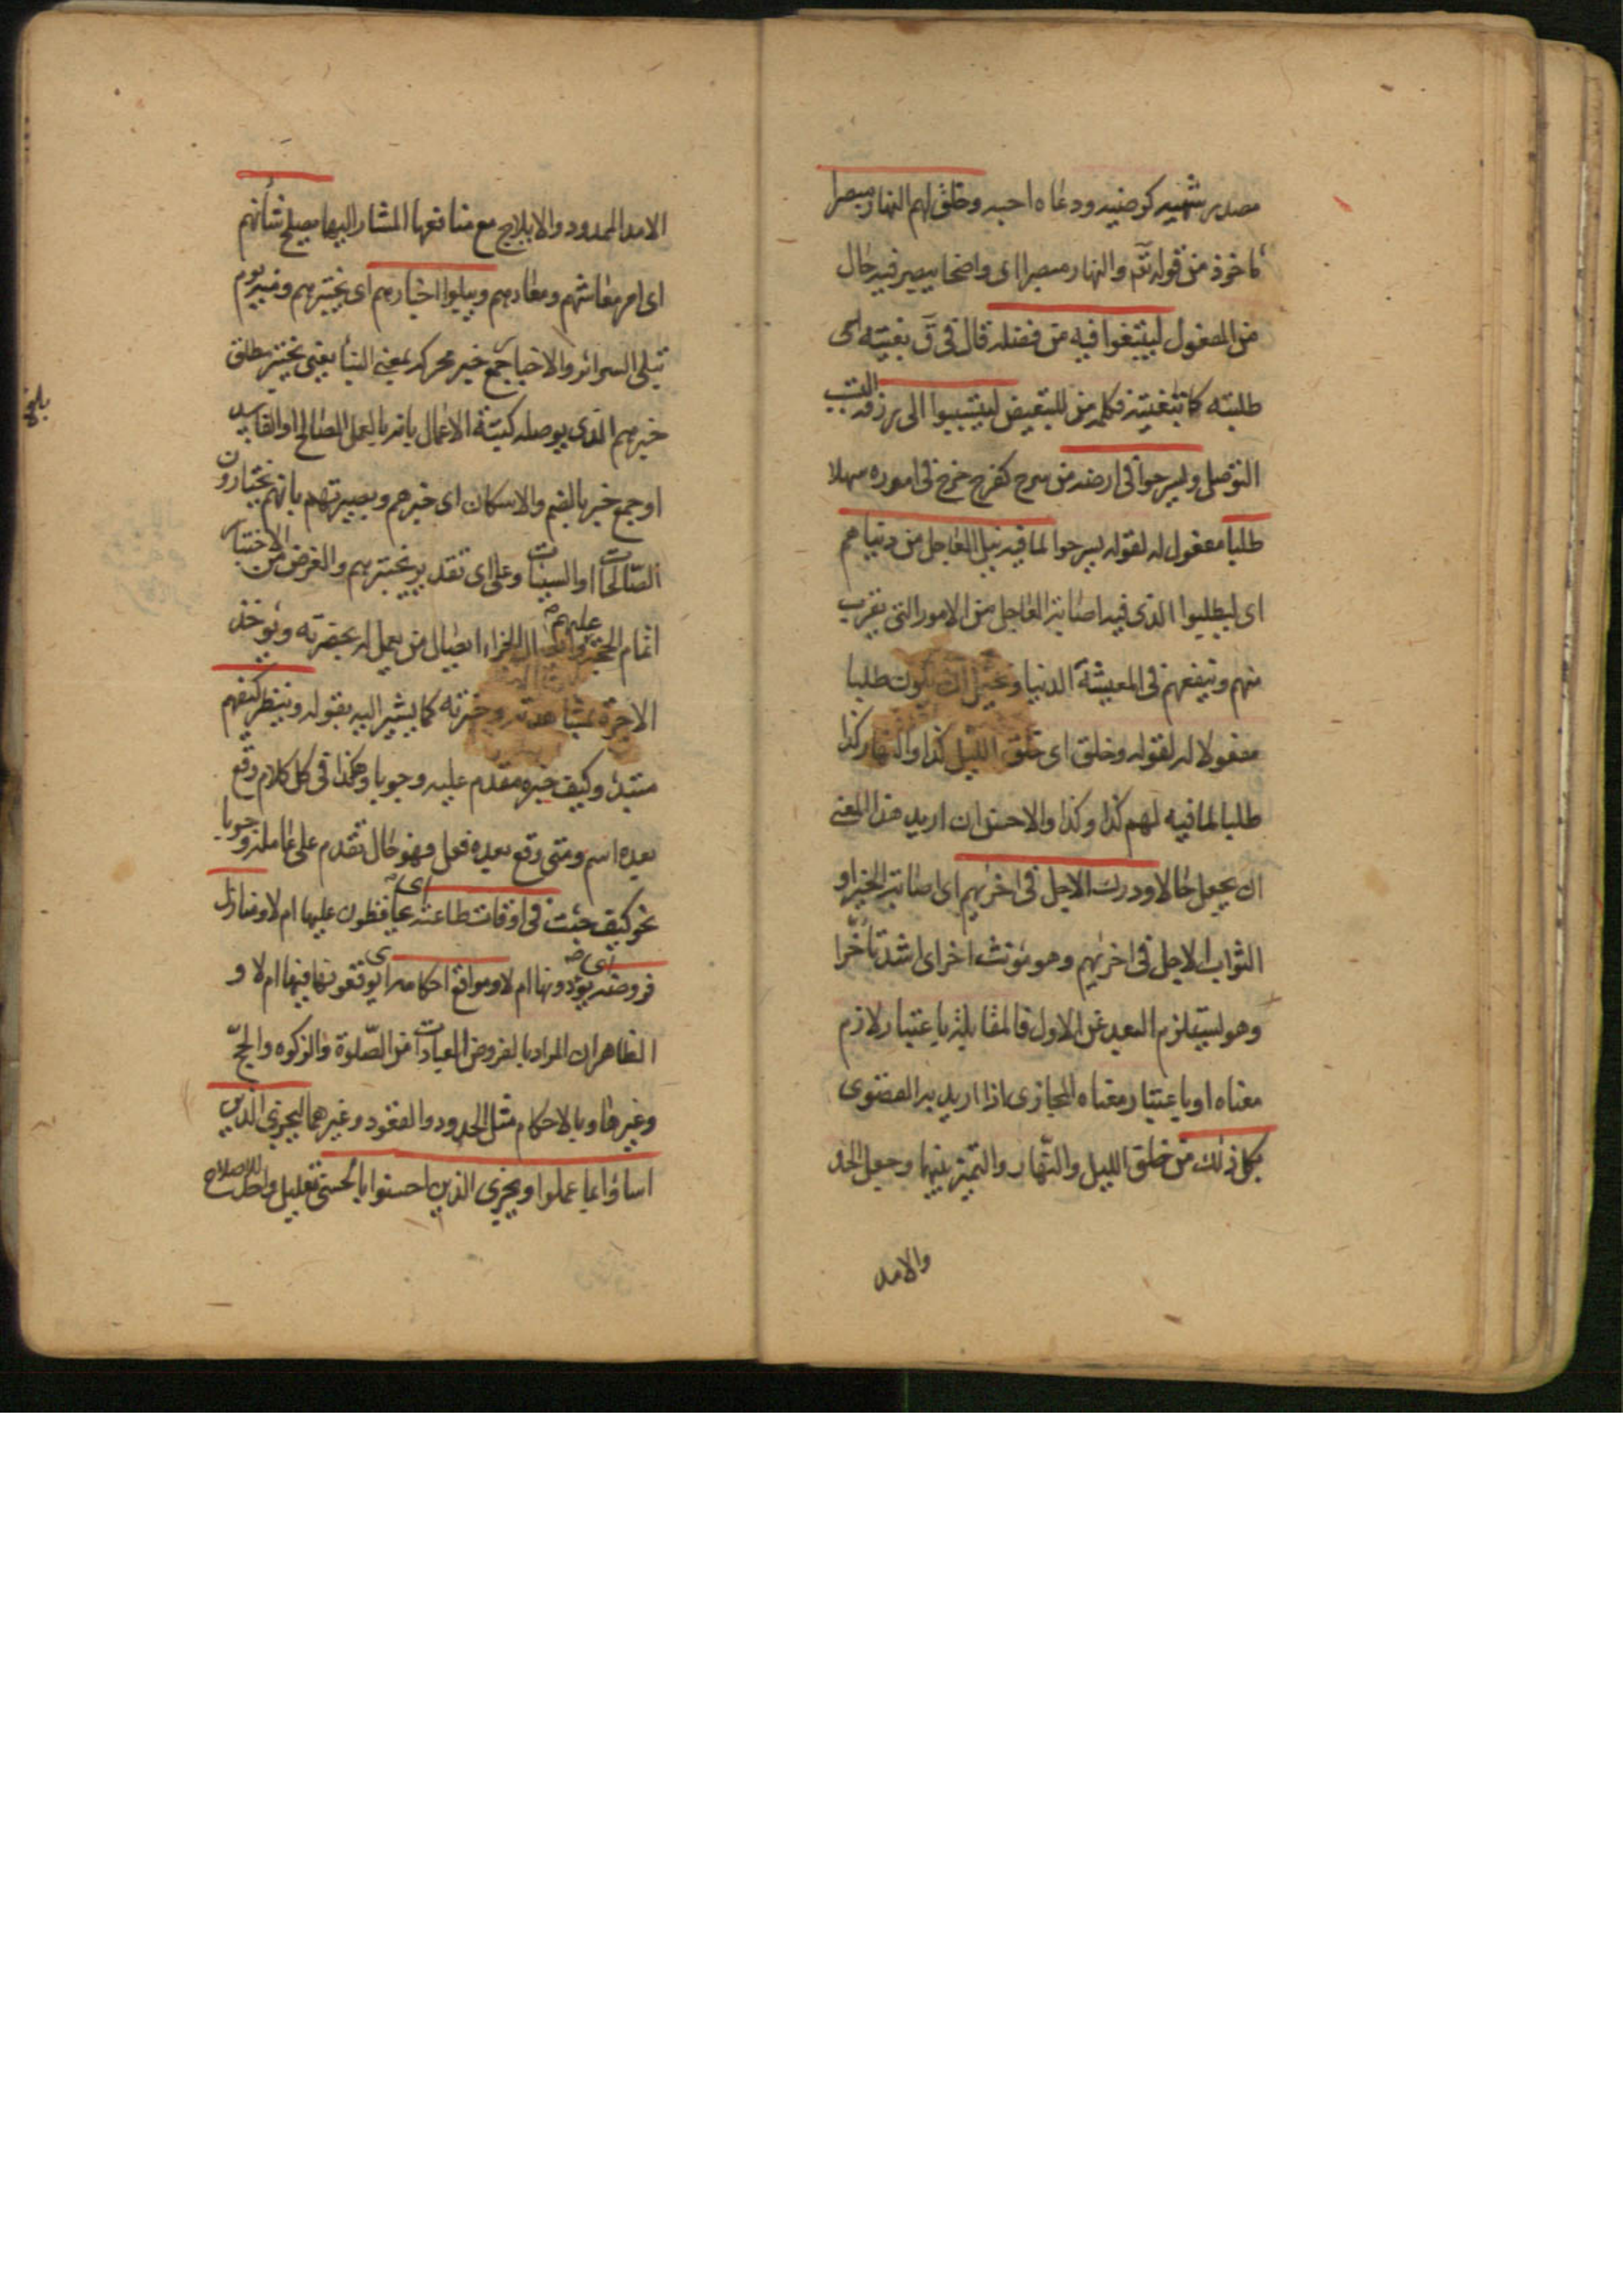 مصدر شهيه كرضيه ودعاه احبه وخلق لهم النهار مبصرا
ماخوذ من قوله تعه والنهار مبصرا اى واضحا يبصر فيه حال
من المفعول ليبتغوا فيه من فضله قال فى ق بغيته اى
طلبته كابتغيته فكلمة من للتبعيض ليتسببوا الى رزقه التسبب
التوصل وليسرحوا فى ارضه من سرح كفرح خرج فى اموره سهلا
طلبا مفعول له لقوله يسرحوا لما فيه نيل العاجل من دنياهم
اى ليطلبوا الذى فيه اصابة العاجل من الامور التى يقرب
منهم وتنفعهم فى المعيشة الدنيا و ان يكون طلبا
مفعولا له لقوله وخلق اى خلق الليل كذا والنهار كذا
طلبا لما فيه لهم كذا وكذا والاحسن ان اريد هذا المعنى
ان يجعل حالا ودرك الاجل فى اخريهم اى اصابة الخير او
الثواب الاجل فى اخريهم وهو مؤنث اخر اى اشد تأخّرا
وهو يستلزم البعد عن الاول فالمقابلة باعتبار لازم
معناه او باعتبار معناه المجازى اذا اريد به القصوى
بكل ذلك من خلق الليل والنّهار والتميز بينهما وجعل الحد
والامد
الامد الممدود والايلاج مع منافعها المشار اليها يصلح شأنهم
اى امر معاشهم ومعادهم ويبلوا اخبارهم اى يختبرهم ومنه يوم
تبلى السرائر والاخبار جمع خبر محركة بمعنى النبأ يعنى يختبر مطلق
خبرهم الذى يوصله كتبة الاعمال بانه بالعمل الصالح او الفاسد
او جمع خبر بالضم والاسكان اى خبرهم وبصيرتهم بانهم يختارون
الصّالحات او السيئات وعلى اى تقدير يختبرهم والغرض من الاختبار
اتمام الحجة عليهم وايصال الجزاء ايصال من يعمل له بحضرته ويؤخذ
الاجرة بمشاهدته وخبرته كما يشير اليه بقوله وينظر كيف هم
مبتدئ وكيف خبره مقدم عليه وجوبا وهكذا فى كل كلام وقع
بعده اسم ومتى وقع بعده فعل فهو حال تقدم على عامله وجوبا
نحو كيف جئت فى اوقات طاعته اى يحافظون عليها ام لا ومنازل
فروضه اى يؤدونها ام لا ومواقع احكامه اى يوقعونها فيها ام لا و
الظاهر ان المراد بالفروض العبادات من الصّلوة والزكوة والحجّ
وغيرها وبالاحكام مثل الحدود والعقود وغيرهما ليجزى الذين
اساؤا بما عملوا ويجزى الذين احسنوا بالحسنى تعليل للاصلاح
بلغ